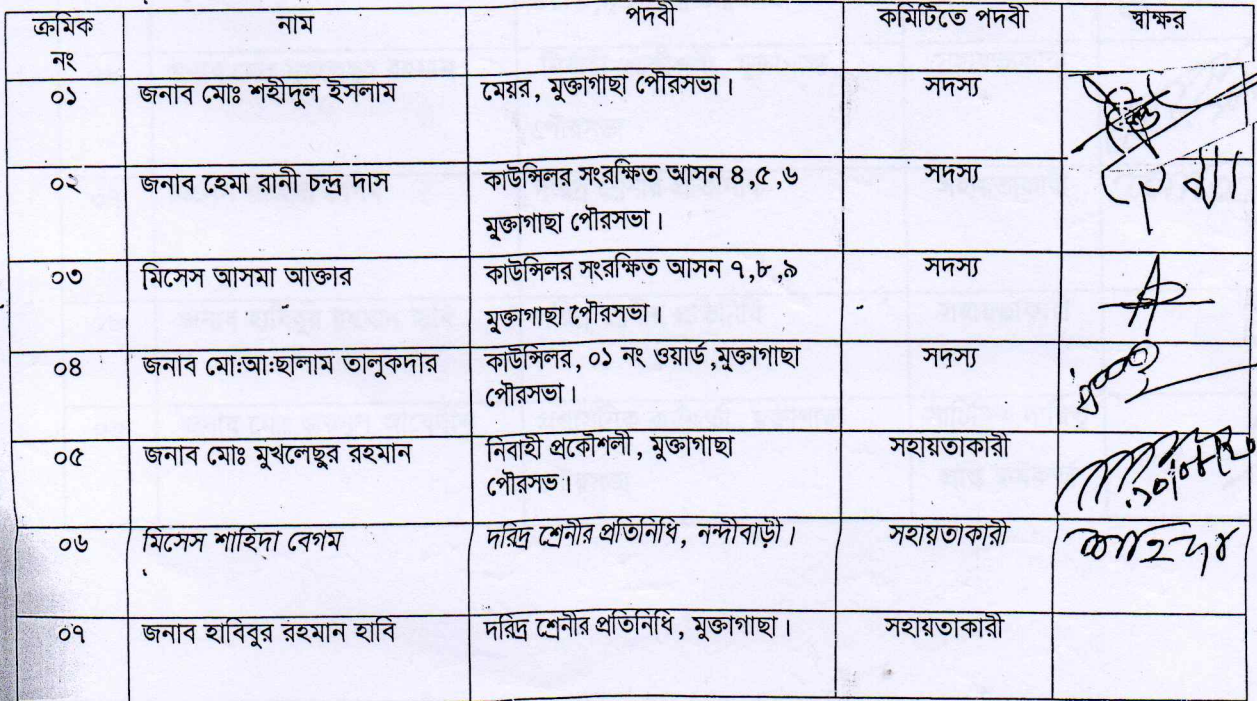 ক্রমিক নং নাম পদবী কমিটিতে পদবী স্বাক্ষর
০১ জনাব মোঃ শহীদুল ইসলাম মেয়র, মুক্তাগাছা পৌরসভা। সদস্য
০২ জনাব হেমা রানী চন্দ্র দাস কাউন্সিলর সংরক্ষিত আসন ৪,৫,৬ সদস্য
মুক্তাগাছা পৌরসভা।
০৩ মিসেস আসমা আক্তার কাউন্সিলর সংরক্ষিত আসন ৭,৮,৯ সদস্য
মুক্তাগাছা পৌরসভা।
০৪ জনাব মো:আ:ছালাম তালুকদার কাউন্সিলর, ০১ নং ওয়ার্ড,মুক্তাগাছা সদস্য
পৌরসভা।
০৫ জনাব মোঃ মুখলেছুর রহমান নির্বাহী প্রকৌশলী, মুক্তাগাছা সহায়তাকারী
পৌরসভ।
০৬ মিসেস শাহিদা বেগম দরিদ্র শ্রেনীর প্রতিনিধি, নন্দীবাড়ী। সহায়তাকারী
০৭ জনাব হাবিবুর রহমান হাবি দরিদ্র শ্রেনীর প্রতিনিধি, মুক্তাগাছা। সহায়তাকারী